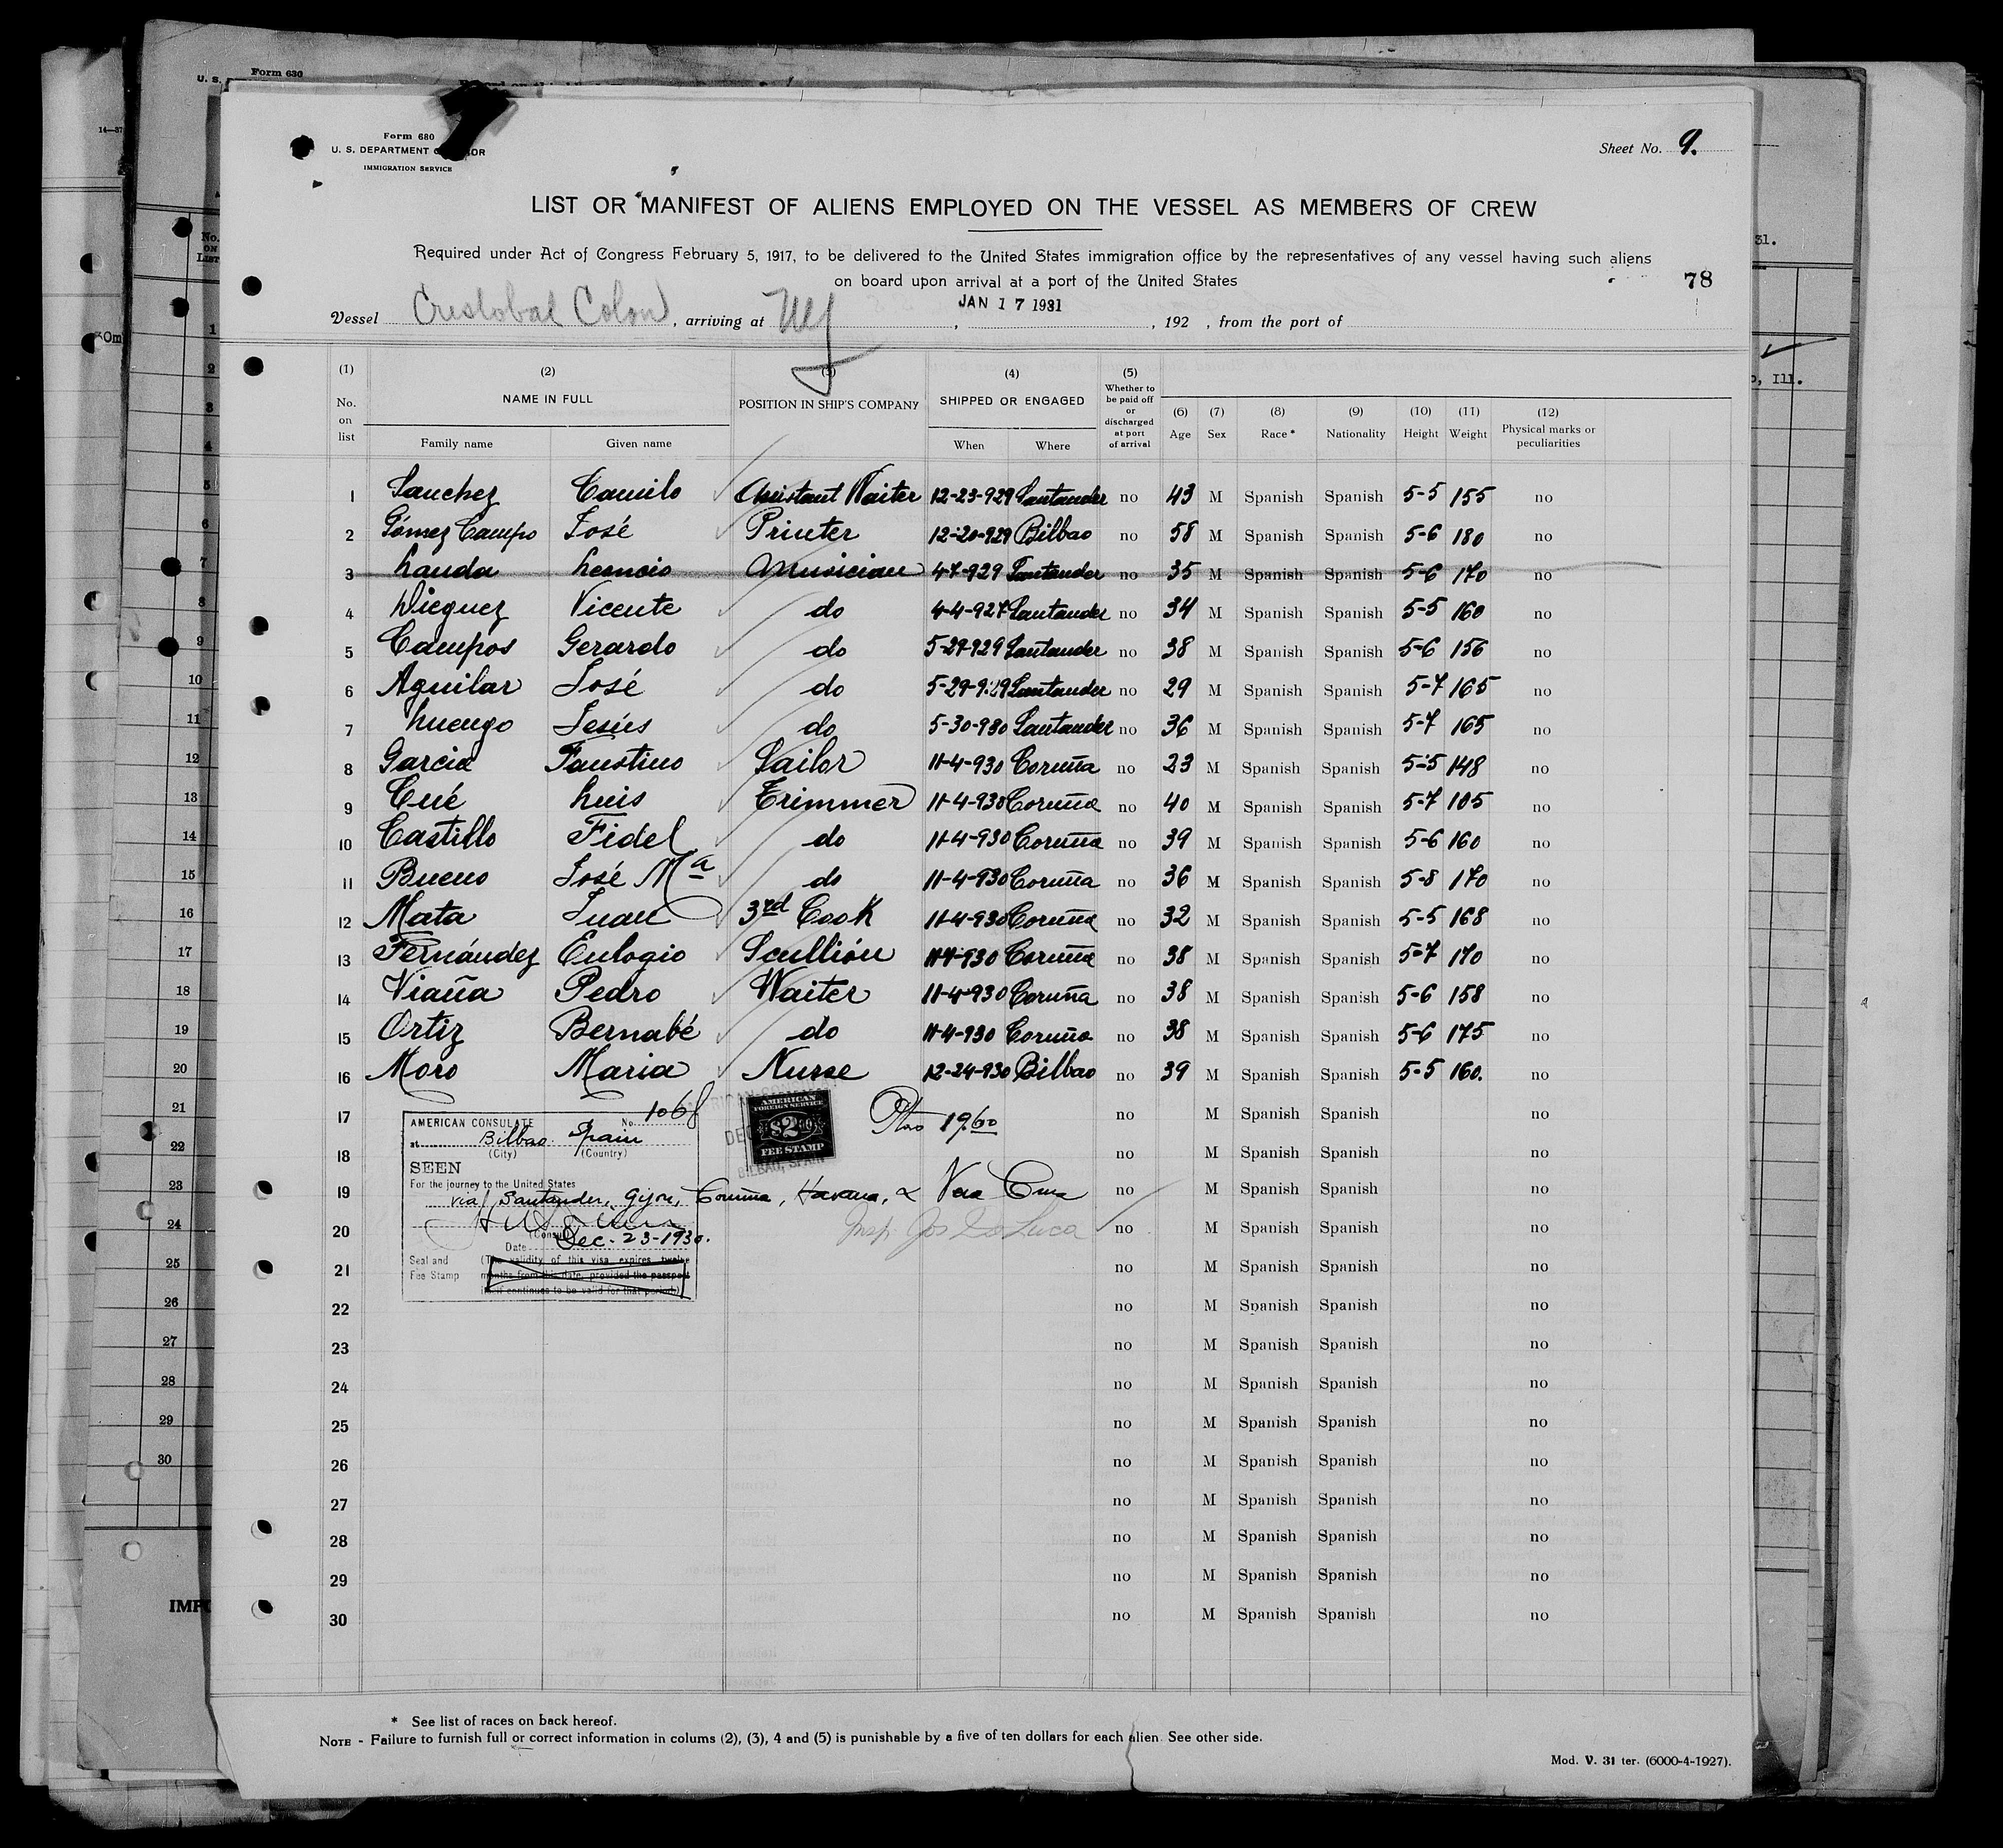 Form 630
U. S.
Form 680
U. S. DEPARTMENT OF LABOR
IMMIGRATION SERVICE
Sheet No. 9.
LIST OR MANIFEST OF ALIENS EMPLOYED ON THE VESSEL AS MEMBERS OF CREW
Required under Act of Congress February 5, 1917, to be delivered to the United States immigration office by the representatives of any vessel having such aliens
on board upon arrival at a port of the United States
78
JAN 17 1931
Vessel Cristobal Colon, arriving at NY, , 192 , from the port of
(1) (2) (3) (4) (5)
No. on list NAME IN FULL POSITION IN SHIP'S COMPANY SHIPPED OR ENGAGED Whether to be paid off or discharged at port of arrival (6) Age (7) Sex (8) Race * (9) Nationality (10) Height (11) Weight (12) Physical marks or peculiarities
Family name Given name When Where
1 Sanchez Camilo Assistant Waiter 12-23-929 Santander no 43 M Spanish Spanish 5-5 155 no
2 Gómez Campo José Printer 12-20-929 Bilbao no 58 M Spanish Spanish 5-6 180 no
3 Landa Leoncio Musician 4-7-929 Santander no 35 M Spanish Spanish 5-6 170 no
4 Dieguez Vicente do 4-4-927 Santander no 34 M Spanish Spanish 5-5 160 no
5 Campos Gerardo do 5-29-929 Santander no 38 M Spanish Spanish 5-6 156 no
6 Aguilar José do 5-29-929 Santander no 29 M Spanish Spanish 5-7 165 no
7 Luengo Jesús do 5-30-930 Santander no 36 M Spanish Spanish 5-7 165 no
8 Garcia Faustino Sailor 11-4-930 Coruña no 23 M Spanish Spanish 5-5 148 no
9 Cué Luis Trimmer 11-4-930 Coruña no 40 M Spanish Spanish 5-7 165 no
10 Castillo Fidel do 11-4-930 Coruña no 39 M Spanish Spanish 5-6 160 no
11 Bueno José Mª do 11-4-930 Coruña no 36 M Spanish Spanish 5-8 170 no
12 Mata Juan 3rd Cook 11-4-930 Coruña no 32 M Spanish Spanish 5-5 168 no
13 Fernández Eulogio Scullión 11-4-930 Coruña no 38 M Spanish Spanish 5-7 170 no
14 Viaña Pedro Waiter 11-4-930 Coruña no 38 M Spanish Spanish 5-6 158 no
15 Ortiz Bernabé do 11-4-930 Coruña no 38 M Spanish Spanish 5-6 175 no
16 Moro Maria Nurse 12-24-930 Bilbao no 39 M Spanish Spanish 5-5 160. no
17 no M Spanish Spanish no
18 no M Spanish Spanish no
19 no M Spanish Spanish no
20 no M Spanish Spanish no
21 no M Spanish Spanish no
22 no M Spanish Spanish no
23 no M Spanish Spanish no
24 no M Spanish Spanish no
25 no M Spanish Spanish no
26 no M Spanish Spanish no
27 no M Spanish Spanish no
28 no M Spanish Spanish no
29 no M Spanish Spanish no
30 no M Spanish Spanish no
AMERICAN CONSULATE No.
at Bilbao Spain
(City) (Country)
SEEN
For the journey to the United States
via Santander, Gijon, Coruña, Havana, & Vera Cruz
(Consul)
Date Dec. 23-1930.
Seal and Fee Stamp
(The validity of this visa expires twelve
months from this date, provided the passport
itself continues to be valid for that period)
AMERICAN
FOREIGN SERVICE
$2
FEE STAMP
BILBAO, SPAIN
Ptas 19.60
Insp. Jos De Luca
* See list of races on back hereof.
NOTE - Failure to furnish full or correct information in colums (2), (3), 4 and (5) is punishable by a five of ten dollars for each alien. See other side.
Mod. V. 31 ter. (6000-4-1927).